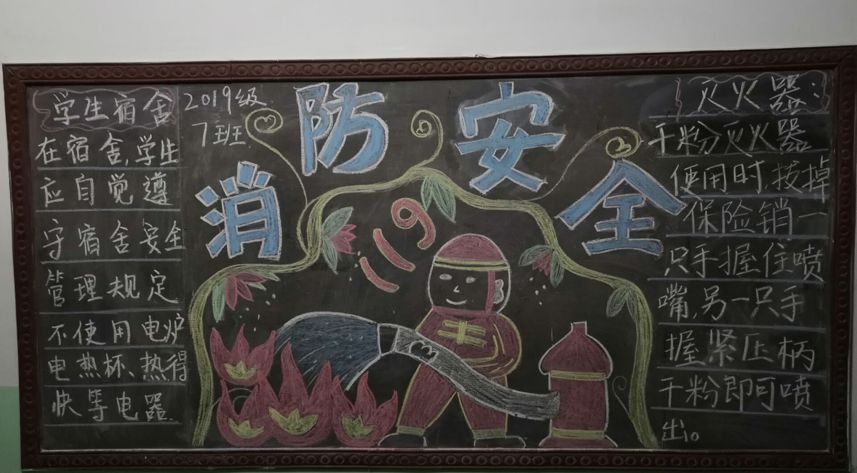 学生宿舍
在宿舍,学生
应自觉遵
守宿舍安全
管理规定
不使用电炉
电热杯、热得
快等电器
2019级
7班
消防安全
119
灭火器:
干粉灭火器
使用时,拔掉
保险销一
只手握住喷
嘴,另一只手
握紧压柄
干粉即可喷
出。